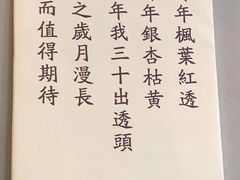 年楓葉紅透
年銀杏枯黄
年我三十出透頭
之歲月漫長
而值得期待